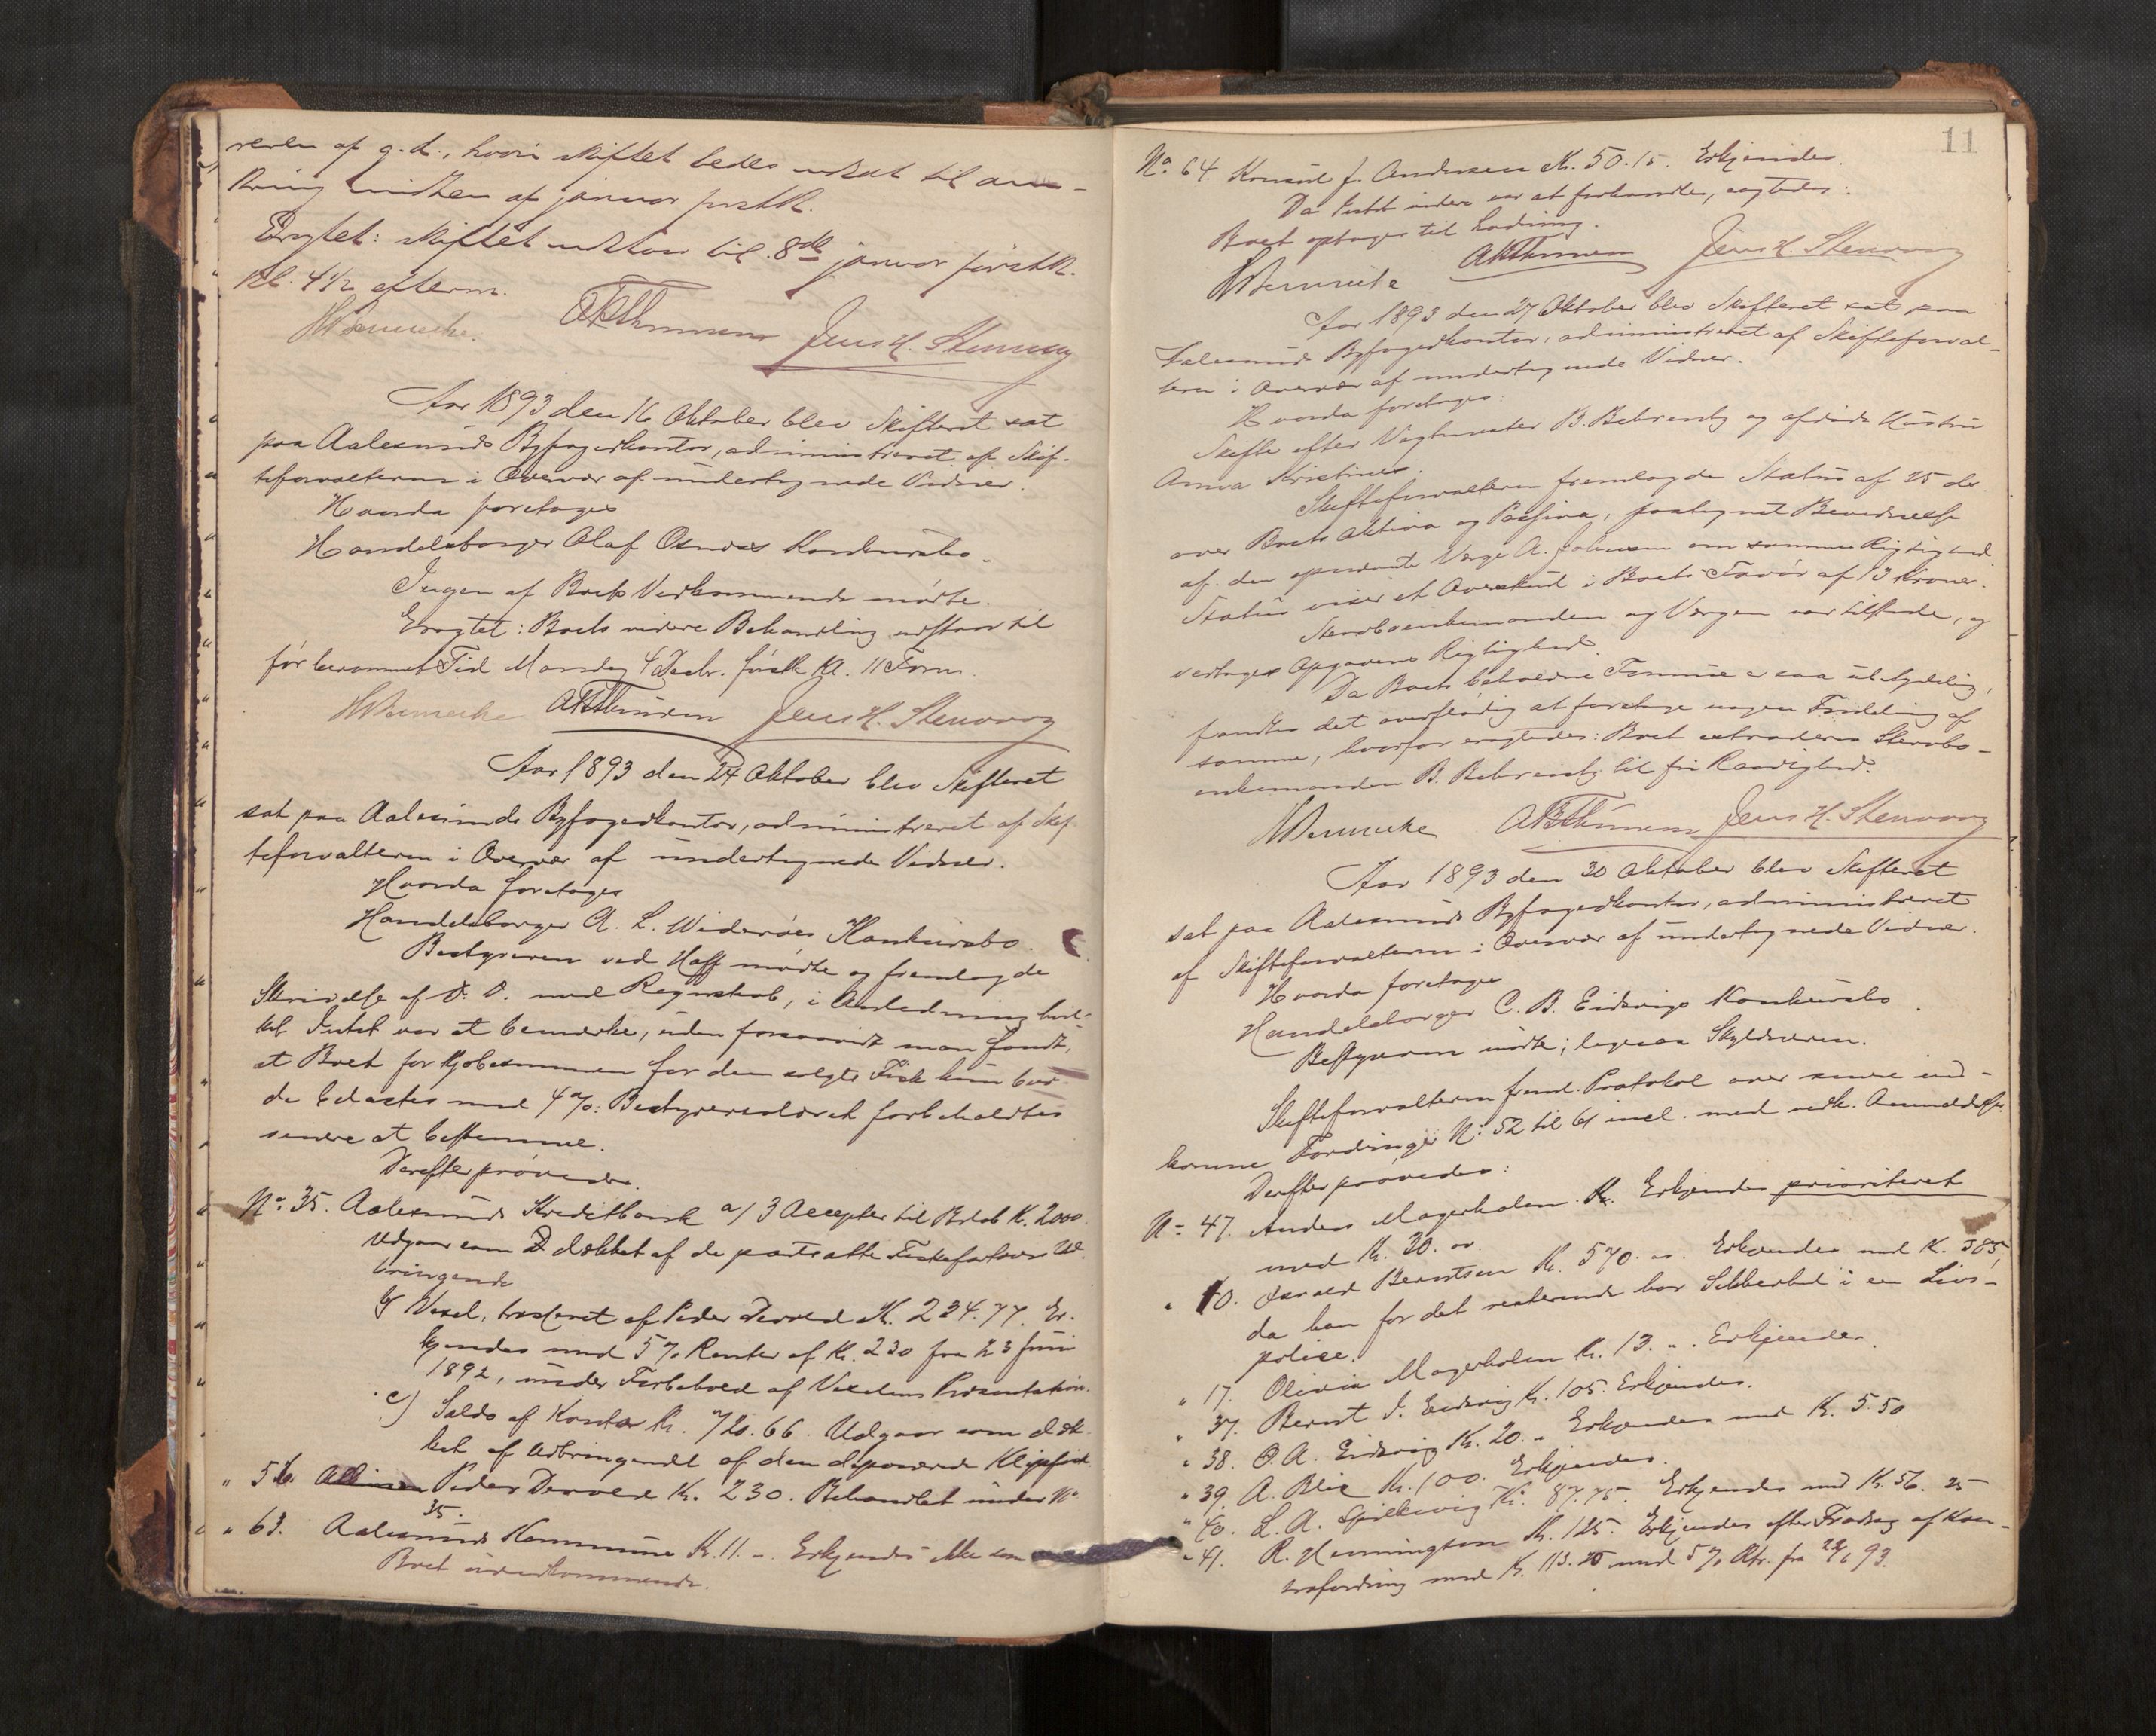 reren af g. d., hvori skiftet bedes udsat til om-
kring midten af januar førstk.
Eragtet: skiftet udstaar til 8de januar førstk.
kl. 4 1/2 efterm.
Jens H. Stenvaag
Aar 1893 den 16 Oktober blev Skifteret sat
paa Aalesunds Byfogedkontor, administreret af Skif-
teforvalteren i Overvær af undertegnede Vidner.
Hvorda foretoges
Handelsborger Olaf Osnæs Konkursbo.
Ingen af Boets Vedkommende mødte.
Eragtet: Boets videre Behandling udstaar til
før berammet Tid Mandag 4 Decbr. førstk. kl. 11 Form.
Jens H. Stenvaag
Aar 1893 den 24 Oktober blev Skifteret
sat paa Aalesunds Byfogedkontor, administreret af Skif-
teforvalteren i Overvær af undertegnede Vidner.
Hvorda foretoges
Handelsborger A. L. Widerøes Konkursbo.
Bestyreren ved Hoff mødte og fremlagde
Skrivelse af D. D. med Regnskab, i Anledning hvil-
ket Intet var at bemærke, uden forsaavidt man fandt,
at Boet for Kjøbesummen for den solgte Fisk kun bur-
de belastes med 4 %: Bestyrersalæret forbeholdtes
senere at bestemme.
Derefter prøvedes.
No. 35. Aalesunds Kreditbank a) 3 Accepter til Beløb K. 2000
Udgaar som dækket af de pantsatte Fiskefartøiers Ud-
bringende
b) Vexel, trasseret af Peder Devold K. 234.77. Er-
kjendes med 5 % Renter af K. 230 fra 23 Juni
1892, under Forbehold af Vexelens Præsentation.
c) Saldo af Konto K. 720.66. Udgaar som dæk-
ket af Udbringendet af den deponerede Klipfisk
" 56. Peder Devold K. 230. Behandlet under No
35.
" 63. Aalesunds Kommune K. 11. -. Erkjendes ikke som
Boet uvedkommende.
11
No. 64. Konsul J. Andersen K. 50.15. Erkjendes.
Da Intet videre var at forhandle, eragtedes:
Boet optages til Lodning.
Jens H. Stenvaag
Aar 1893 den 27 Oktober blev Skifteret sat paa
Aalesunds Byfogedkontor, administreret af Skifteforval-
teren i Overvær af undertegnede Vidner.
Hvorda foretoges:
Skifte efter Vagtmester B. Behrentz og afdøde Hustru
Anna Kristine.
Skifteforvalteren fremlagde Status af 25 ds.
over Boets Aktiva og Passiva, paategnet Bevidnelse
af den opnævnte Værge A. Johnsen om sammes Rigtighed.
Status viser et Overskud i Boets Favør af 13 Kroner.
Stervboenkemanden og Værgen var tilstede, og
vedtoges Opgavens Rigtighed.
Da Boets beholdne Formue er saa ubetydelig,
fandtes det overflødig at foretage nogen Fordeling af
samme, hvorfor eragtedes: Boet extraderes Stervbo-
enkemanden B. Behrentz til fri Raadighed.
Jens H. Stenvaag
Aar 1893 den 30 Oktober blev Skifteret
sat paa Aalesunds Byfogedkontor, administreret
af Skifteforvalteren i Overvær af undertegnede Vidner.
Hvorda foretoges
Handelsborger C. B. Eidsvigs Konkursbo
Bestyreren mødte; ligesaa Skyldneren.
Skifteforvalteren freml. Protokol over senere ind-
komne Fordringer No. 52 til 61 incl. med vedk. Anmeldelser.
Derefter prøvedes:
No. 47. Anders Magerholm. Erkjendes prioriteret
med K. 30. -.
" 10. Berntsen K. 570. -. Erkjendes med K. 385,
da han for det resterende har Sikkerhed i en Livs-
police.
" 17. Olivia Magerholm K. 13. -. Erkjendes.
" 37. Bernt J. Eidsvig K. 105. Erkjendes.
" 38. O. A. Eidsvig K. 20. - Erkjendes med K. 5.50
" 39. A. Blix K. 100. Erkjendes.
" 40. L. A. K. 87.75. Erkjendes med K. 56. 25
" 41. R. Henningsen K. 125. Erkjendes efter Fradrag af Kon-
trafordring med K. 113. 25 med 5 % Rtr. fra 22/6 93.